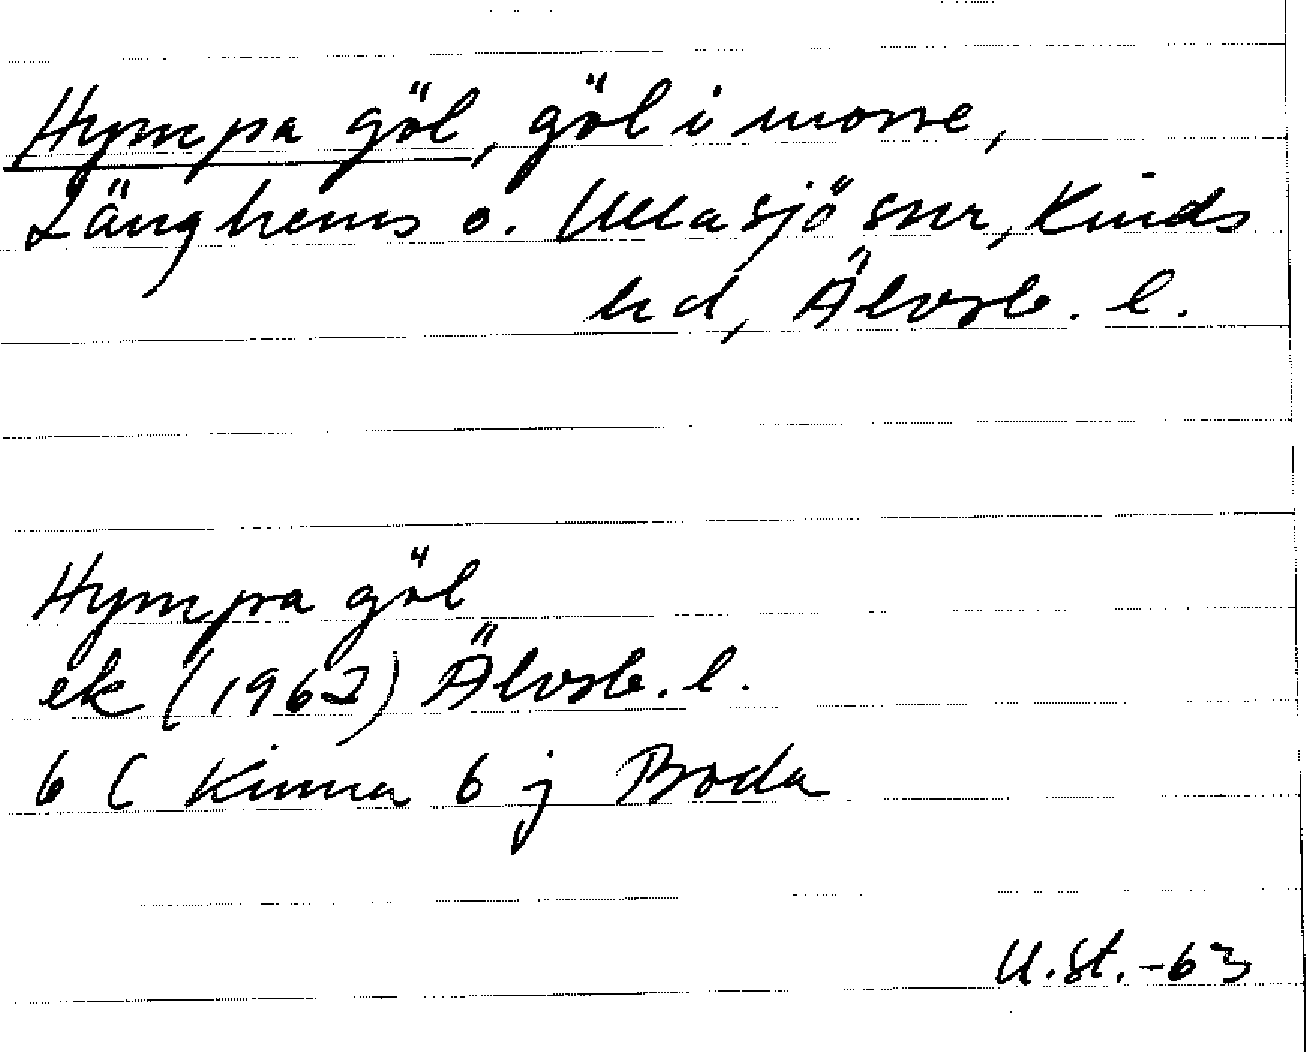 Hympa göl, göl i mosse,
Länghems o. Ullasjö snr, Kinds
hd, Älvsb. l.
Hympa göl
ek (1962) Älvsb. l.
6 C Kinna 6 j Boda
U.St.-63